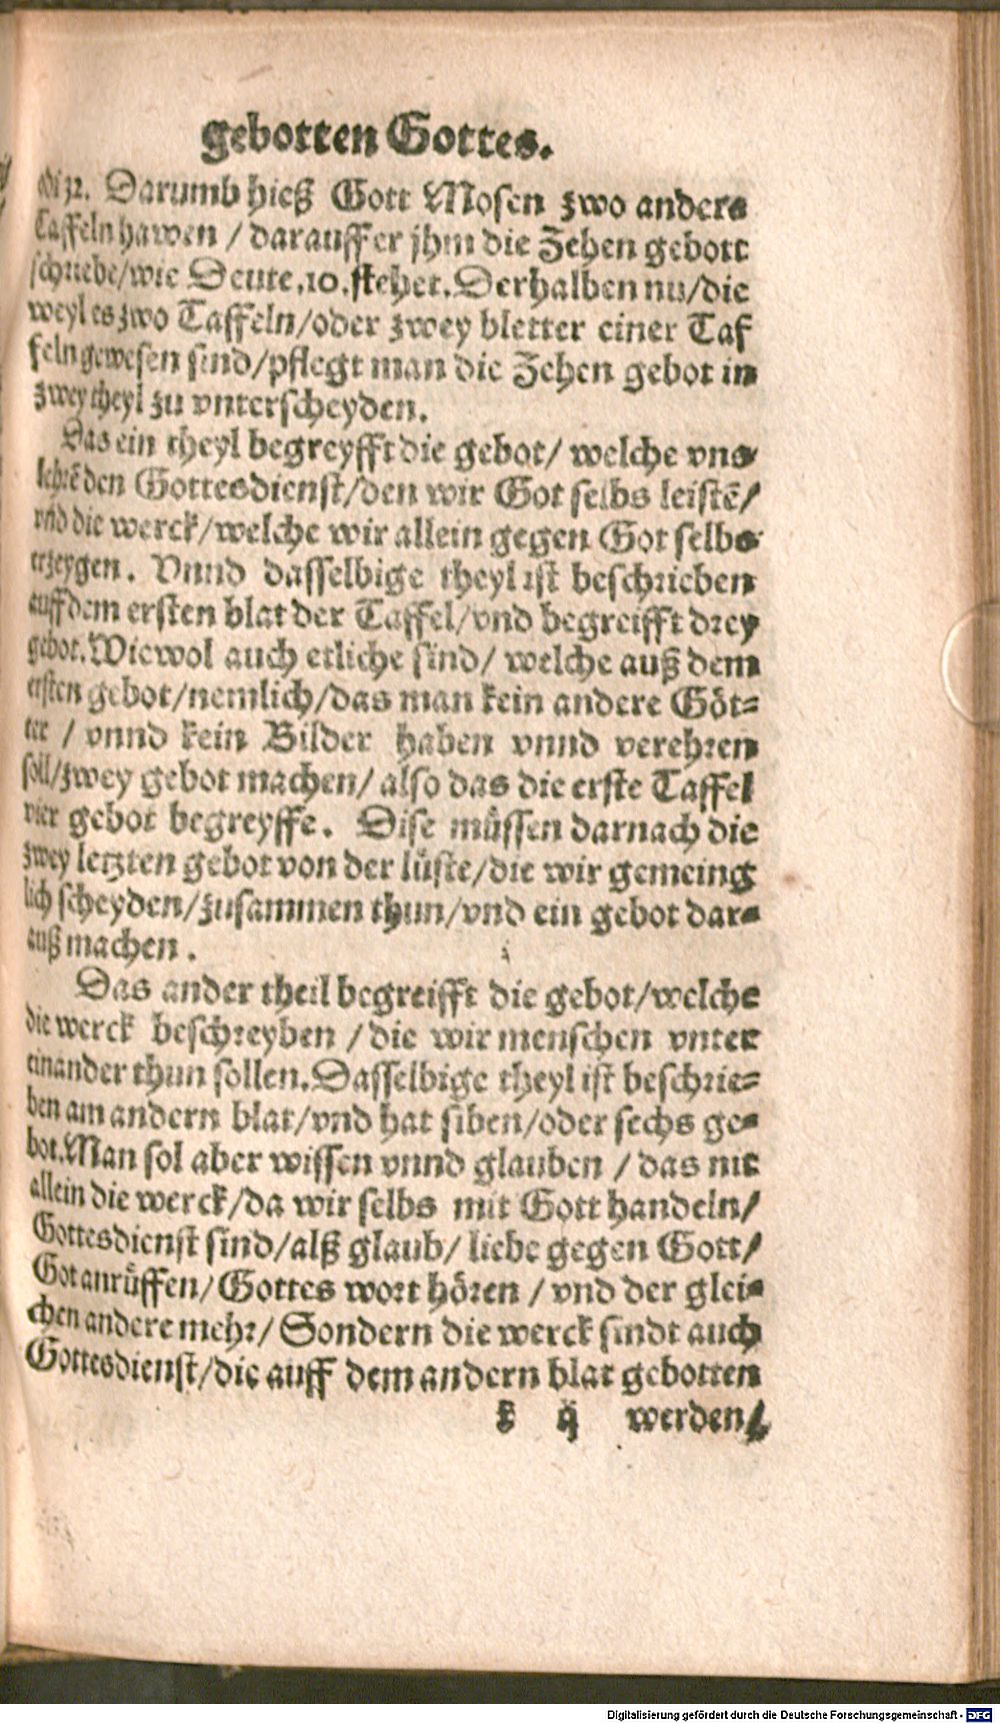 gebotten Gottes.
odi 32. Darumb hieß Gott Mosen zwo andere
Taffeln hawen / darauff er jhm die Zehen gebott
schriebe/wie Deute.10.stehet.Derhalben nu/die
weyl es zwo Taffeln/oder zwey bletter einer Taf
feln gewesen sind/pflegt man die Zehen gebot in
zwey theyl zu vnterscheyden.
Das ein theyl begreyfft die gebot/ welche vns
lehrē den Gottesdienst/den wir Got selbs leistē/
vnd die werck/welche wir allein gegen Got selbs
erzeygen. Vnnd dasselbige theyl ist beschrieben
auff dem ersten blat der Taffel/vnd begreifft drey
gebot.Wiewol auch etliche sind/ welche auß dem
ersten gebot/nemlich/das man kein andere Göt=
ter / vnnd kein Bilder haben vnnd verehren
soll/zwey gebot machen/ also das die erste Taffel
vier gebot begreyffe. Dise müssen darnach die
zwey letzten gebot von der lüste/die wir gemeing
lich scheyden/zusammen thun/vnd ein gebot dar=
auß machen.
Das ander theil begreifft die gebot/welche
die werck beschreyben / die wir menschen vnter
einander thun sollen.Dasselbige theyl ist beschrie=
ben am andern blat/vnd hat siben/oder sechs ge=
bot.Man sol aber wissen vnnd glauben / das nit
allein die werck/da wir selbs mit Gott handeln/
Gottesdienst sind/alß glaub/ liebe gegen Gott/
Got anrüffen/ Gottes wort hören / vnd der glei=
chen andere mehr/ Sondern die werck sindt auch
Gottesdienst/die auff dem andern blat gebotten
k ij werden/
Digitalisierung gefördert durch die Deutsche Forschungsgemeinschaft - DFG